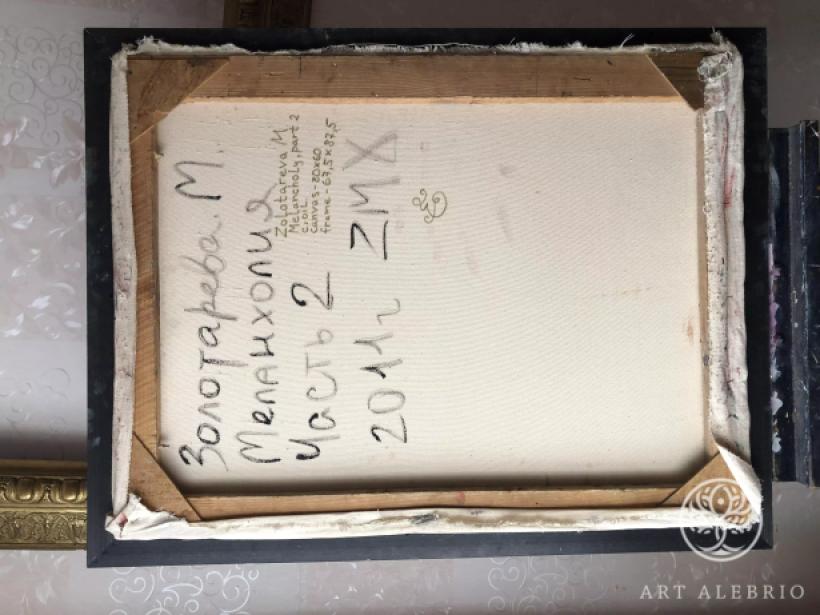 Золотарева. М.
Меланхолия
Часть 2
2011г ZMX
Zolotareva M.
Melancholy, part 2
c, oil
canvas - 80x60
frame - 67,5x87,5
ART ALEBRIO